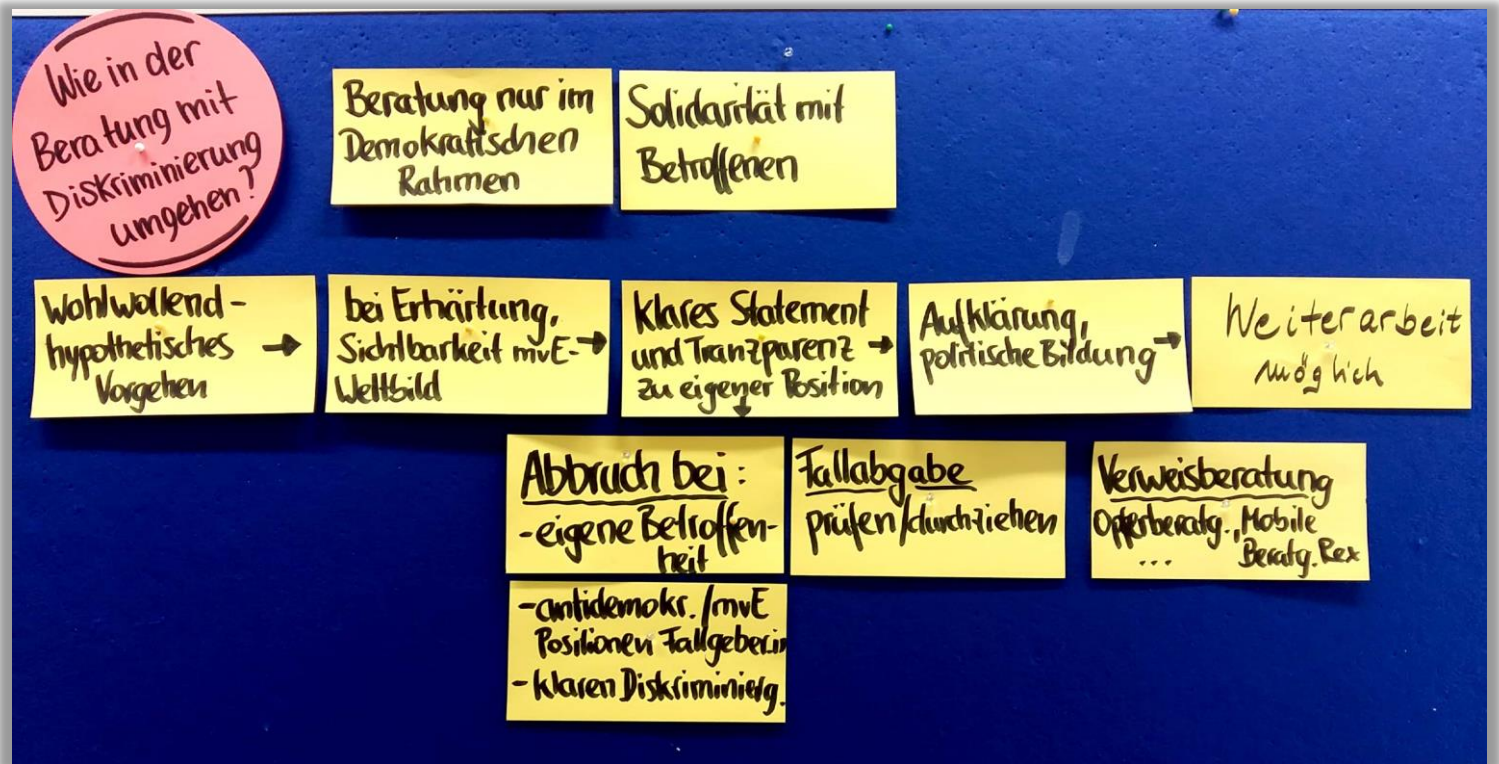 Wie in der
Beratung mit
Diskriminierung
umgehen?
Beratung nur im
Demokratischen
Rahmen
Solidarität mit
Betroffenen
Wohlwollend-
hypothetisches →
Vorgehen
bei Erhärtung,
Sichtbarkeit mvE- →
Weltbild
klares Statement
und Tranzparenz →
zu eigener Position
↓
Aufklärung,
politische Bildung →
Weiterarbeit
möglich
Abbruch bei:
- eigene Betroffen-
heit
- antidemokr./mvE
Positionen Fallgeber.in
- klaren Diskriminierg.
Fallabgabe
prüfen/durchziehen
Verweisberatung
Opferberatg., Mobile
... Beratg. Rex